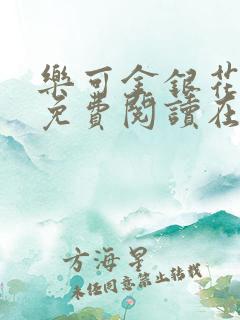 樂可金銀花
免費閱讀在
方海星
未經同意禁止轉載